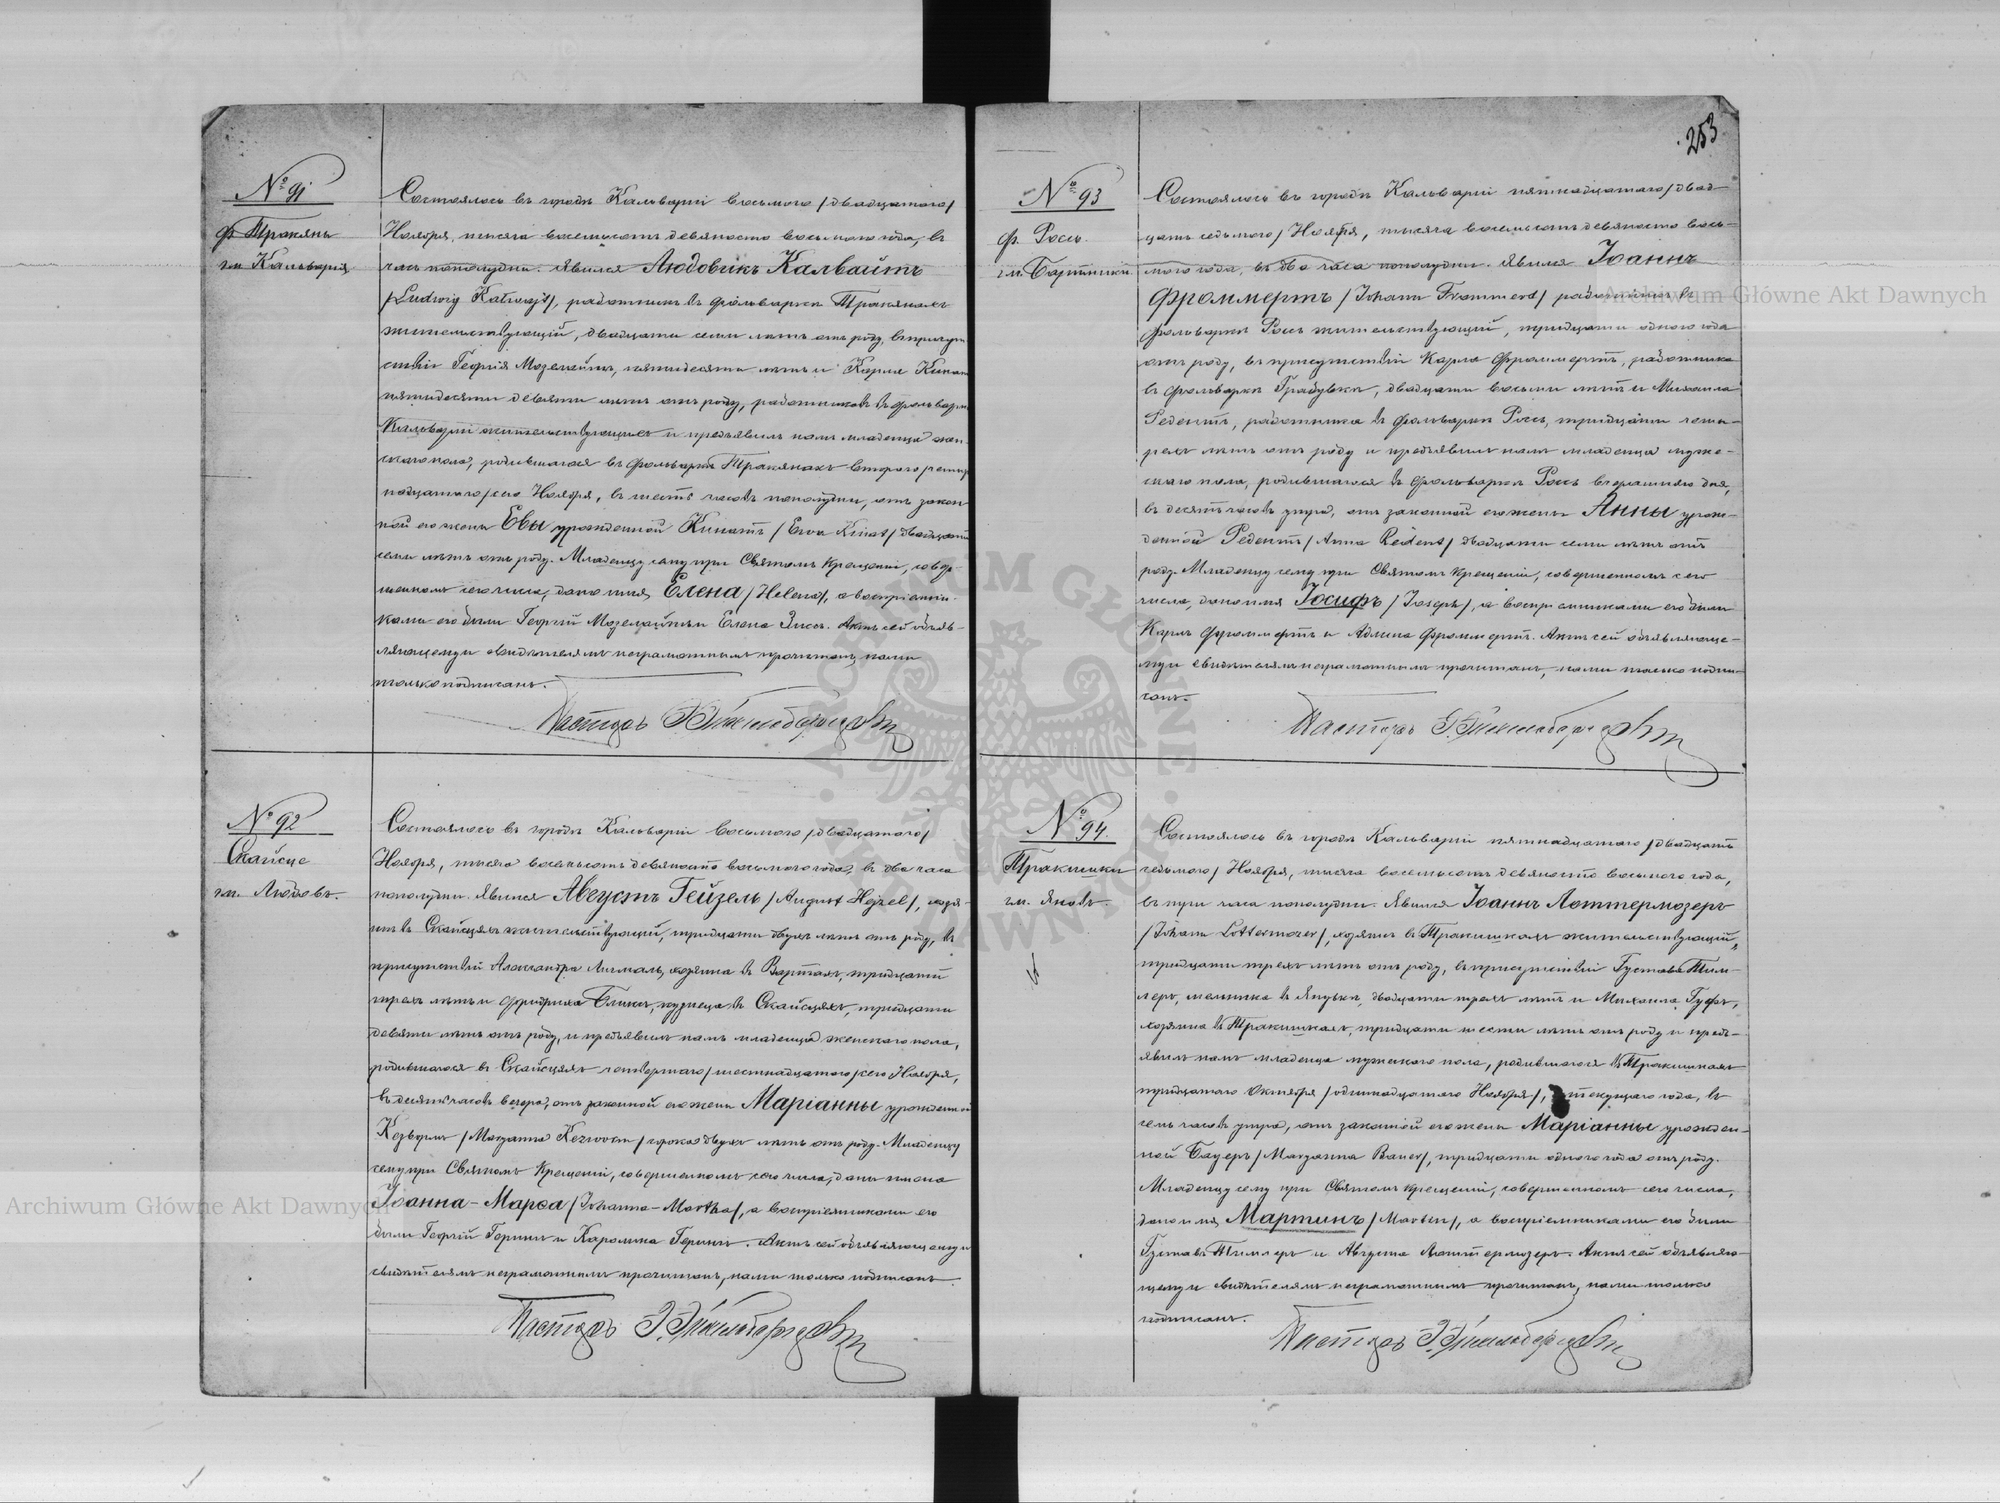 253
№ 91
ф. Тракяны
гм. Кальварія
Состоялось въ городѣ Кальваріи восьмого /двадцатого/
Ноября, тысяча восемьсотъ девяносто восьмого года, въ
часъ пополудни. Явился Людовикъ Калвайтъ
/Ludwig Kalwajt/, работникъ въ фольваркѣ Тракянахъ
жительствующій, двадцати семи лѣтъ отъ роду, въ присут-
ствіи Георгія Мозелайтъ, пятидесяти лѣтъ и Карла Кинат
пятидесяти девяти лѣтъ отъ роду, работниковъ въ фольварк
Кальваріи жительствующихъ и предъявилъ намъ младенца жен-
скаго пола, родившагося въ фольваркѣ Тракянахъ второго /четыр-
надцатого/ сего Ноября, въ шесть часовъ пополудни, отъ закон-
ной его жены Евы урожденной Кинатъ /Ewa Kinat/ двадцати
семи лѣтъ отъ роду. Младенцу сему при Святомъ Крещеніи, совер-
шенномъ сего числа, дано имя Елена /Helena/, а воспріемни-
ками его были Георгій Мозелайтъ и Елена Зиссъ. Актъ сей объяв-
ляющему и свидѣтелямъ неграмотнымъ прочитанъ, нами
только подписанъ.
Пасторъ
№ 92
Скайсце
гм. Людовъ.
Состоялось въ городѣ Кальваріи восьмого /двадцатого/
Ноября, тысяча восемьсотъ девяносто восьмого года, въ два часа
пополудни. Явился Августъ Гейзель /August Hejzel/, хозя-
инъ въ Скайсцяхъ жительствующій, тридцати двухъ лѣтъ отъ роду, въ
присутствіи Александра хозяина въ Вартахъ, тридцати
трехъ лѣтъ и Фридриха кузнеца въ Скайсцяхъ, тридцати
девяти лѣтъ отъ роду, и предъявилъ намъ младенца женскаго пола,
родившагося въ Скайсцяхъ четвертаго /шестнадцатаго/ сего Ноября,
въ десять часовъ вечера, отъ законной его жены Маріанны урожденной
Кезвормъ /Maryanna сорока двухъ лѣтъ отъ роду. Младенцу
сему при Святомъ Крещеніи, совершенномъ сего числа, даны имена
Іоанна-Марѳа /Johanna-Martha/, а воспріемниками его
были Георгій Геринъ и Каролина Геринъ. Актъ сей объявляющему и
свидѣтелямъ неграмотнымъ прочитанъ, нами только подписанъ.
Пасторъ
№ 93
ф. Россь.
гм. Бартники
Состоялось въ городѣ Кальваріи пятнадцатаго /двад-
цать седьмого/ Ноября, тысяча восемьсотъ девяносто вось-
мого года, въ два часа пополудни. Явился Іоаннъ
Фроммертъ /Johann Frommert/ работникъ въ
фольваркѣ Россь жительствующій, тридцати одного года
отъ роду, въ присутствіи Карла Фроммертъ, работника
въ фольваркѣ Грабувкѣ, двадцати восьми лѣтъ и Михаила
Редентъ, работника въ фольваркѣ Россь, тридцати четы-
рехъ лѣтъ отъ роду и предъявилъ намъ младенца муже-
скаго пола, родившагося въ фольваркѣ Россь вчерашняго дня,
въ десять часовъ утра, отъ законной его жены Анны урож-
денной Редентъ /Anna Reident/ двадцати семи лѣтъ отъ
роду. Младенцу сему при Святомъ Крещеніи, совершенномъ сего
числа, дано имя Іосифъ /Joseph/, а воспріемниками его были
Карлъ Фроммертъ и Адлина Фроммертъ. Актъ сей объявляюще-
му и свидѣтелямъ неграмотнымъ прочитанъ, нами только подпи-
санъ.
Пасторъ
№ 94.
Тракишки
гм. Яновъ.
Состоялось въ городѣ Кальваріи пятнадцатаго /двадцать
седьмого/ Ноября, тысяча восемьсотъ девяносто восьмого года,
въ три часа пополудни. Явился Іоаннъ Лоттермозеръ
/Johann Lottermozer/, хозяинъ въ Тракишкахъ жительствующій,
тридцати трехъ лѣтъ отъ роду, въ присутствіи Густава Тим-
леръ, мельника въ двадцати трехъ лѣтъ и Михаила Гуфъ,
хозяина въ Тракишкахъ, тридцати шести лѣтъ отъ роду и предъ-
явилъ намъ младенца мужескаго пола, родившагося въ Тракишкахъ
тридцатаго Октября /одинадцатаго Ноября/, текущаго года, въ
семь часовъ утра, отъ законной его жены Маріанны урожден-
ной Бауеръ /Maryanna Bauer/, тридцати одного года отъ роду.
Младенцу сему при Святомъ Крещеніи, совершенномъ сего числа,
дано имя Мартинъ /Martin/, а воспріемниками его были
Густавъ Тимлеръ и Августа Лоттермозеръ. Актъ сей объявляю-
щему и свидѣтелямъ неграмотнымъ прочитанъ, нами только
подписанъ.
Пасторъ
Archiwum Główne Akt Dawnych
Archiwum Główne Akt Dawnych
ARCHIWUM GŁÓWNE AKT DAWNYCH